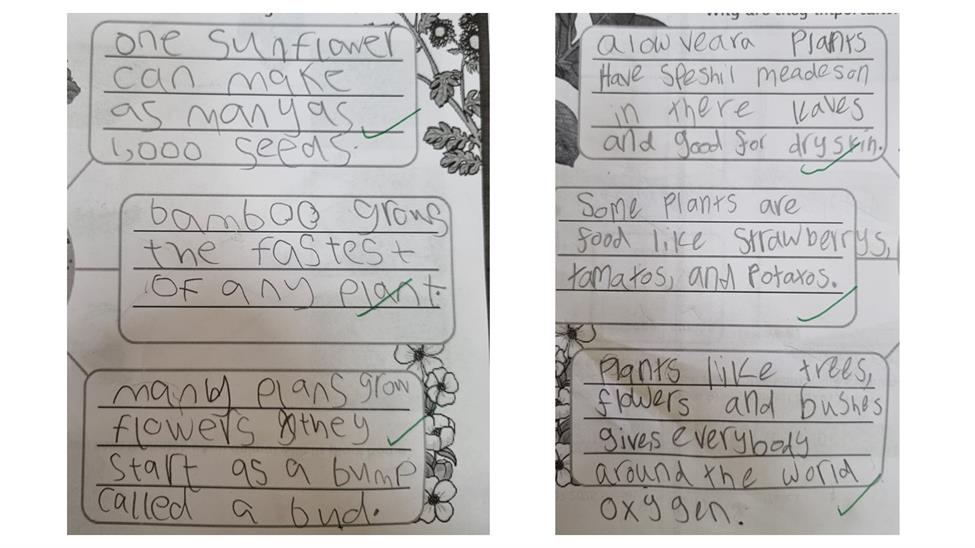 one sunflower
can make
as many as
1,000 seeds.
bamboo grows
the fastest
of any plant.
many plans grow
flowers they
start as a bump
called a bud.
Why are they important
alow veara Plants
Have speshil meadeson
in there leaves
and good for dry skin.
Some Plants are
food like strawberrys,
tamatos, and Potatos.
Plants like trees,
flowers and bushes
gives everybody
around the world
oxygen.